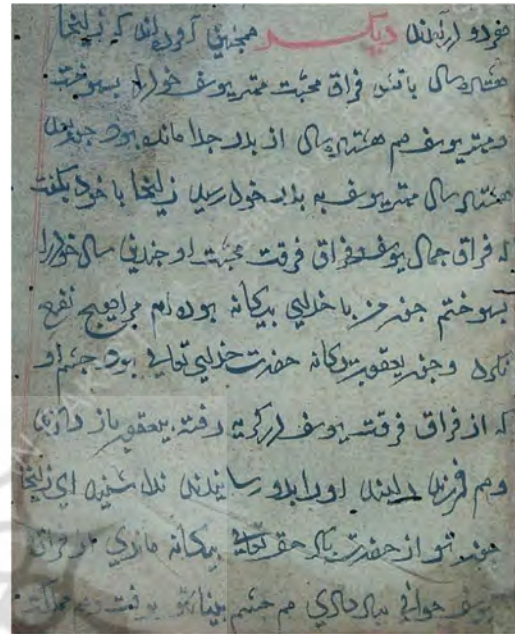 هردو اربطند دیکر همچنین آورده اند که زلیخا
هشتاد سال باتش فراق محبت مهتر یوسف خودرا بسوخت
و مهتر یوسف هم هشتاد سال از بدر جدا مانده بود جون بعد
هشتاد سال مهتر یوسف به بدر خود رسید زلیخا با خود بکفت
که فراق جمال یوسف و فراق فرقت محبت او جندین سال خودرا
بسوختم جون من با خدای بیکانه بوده ام مرا هیچ نفع
نکرد و جون یعقوب یکانه حضرت خدای تعالی بود جشم او
که از فراق فرقت یوسف در کریه رفته بیعقوب باز دادند
و هم فرزند دلبند اورا بدو رسانیدند ندا شنید ای زلیخا
جون تو از حضرت باری حق تعالی بیکانه ماندی در فراق
یوسف جوانی بباد دادی هم جشم بینا تو برفت